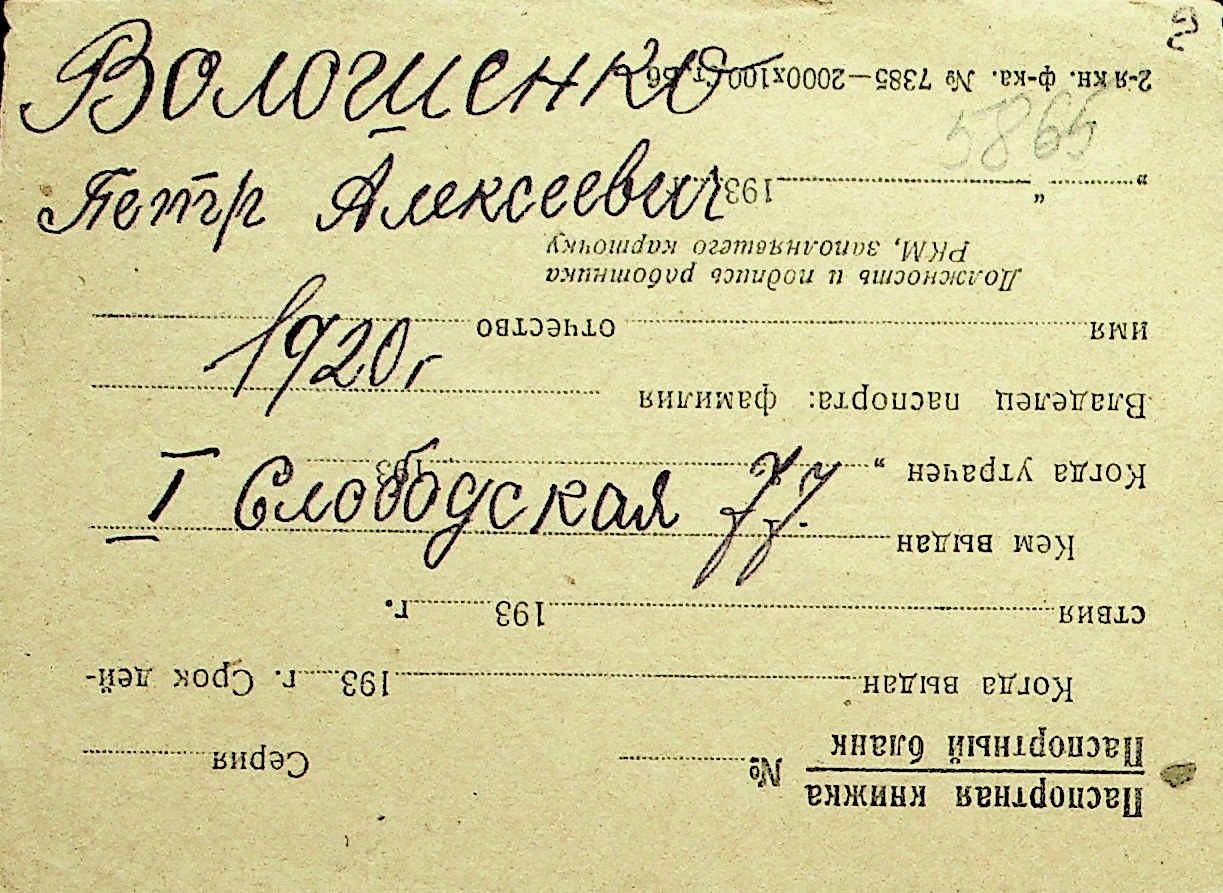 Волошенко
Петр Алексеевич
1920 г
I Слободская 77
5865
Паспортная книжка
Паспортный бланк
№ Серия
Когда выдан 193 г. Срок дей-
ствия 193 г.
Кем выдан
Когда утрачен „ 193
Владелец паспорта: фамилия
имя отчество
Должность и подпись работника
РКМ, заполнявшего карточку
„ “ 193
2-я кн. ф-ка. № 7385—2000х100